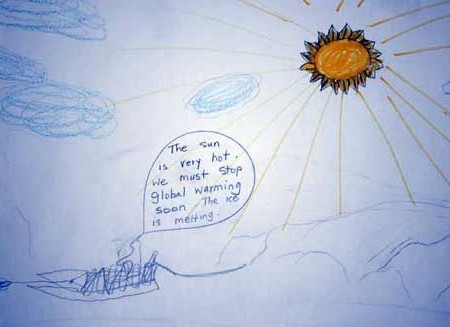 The sun
is very hot.
We must stop
global warming
soon The ice
is melting.